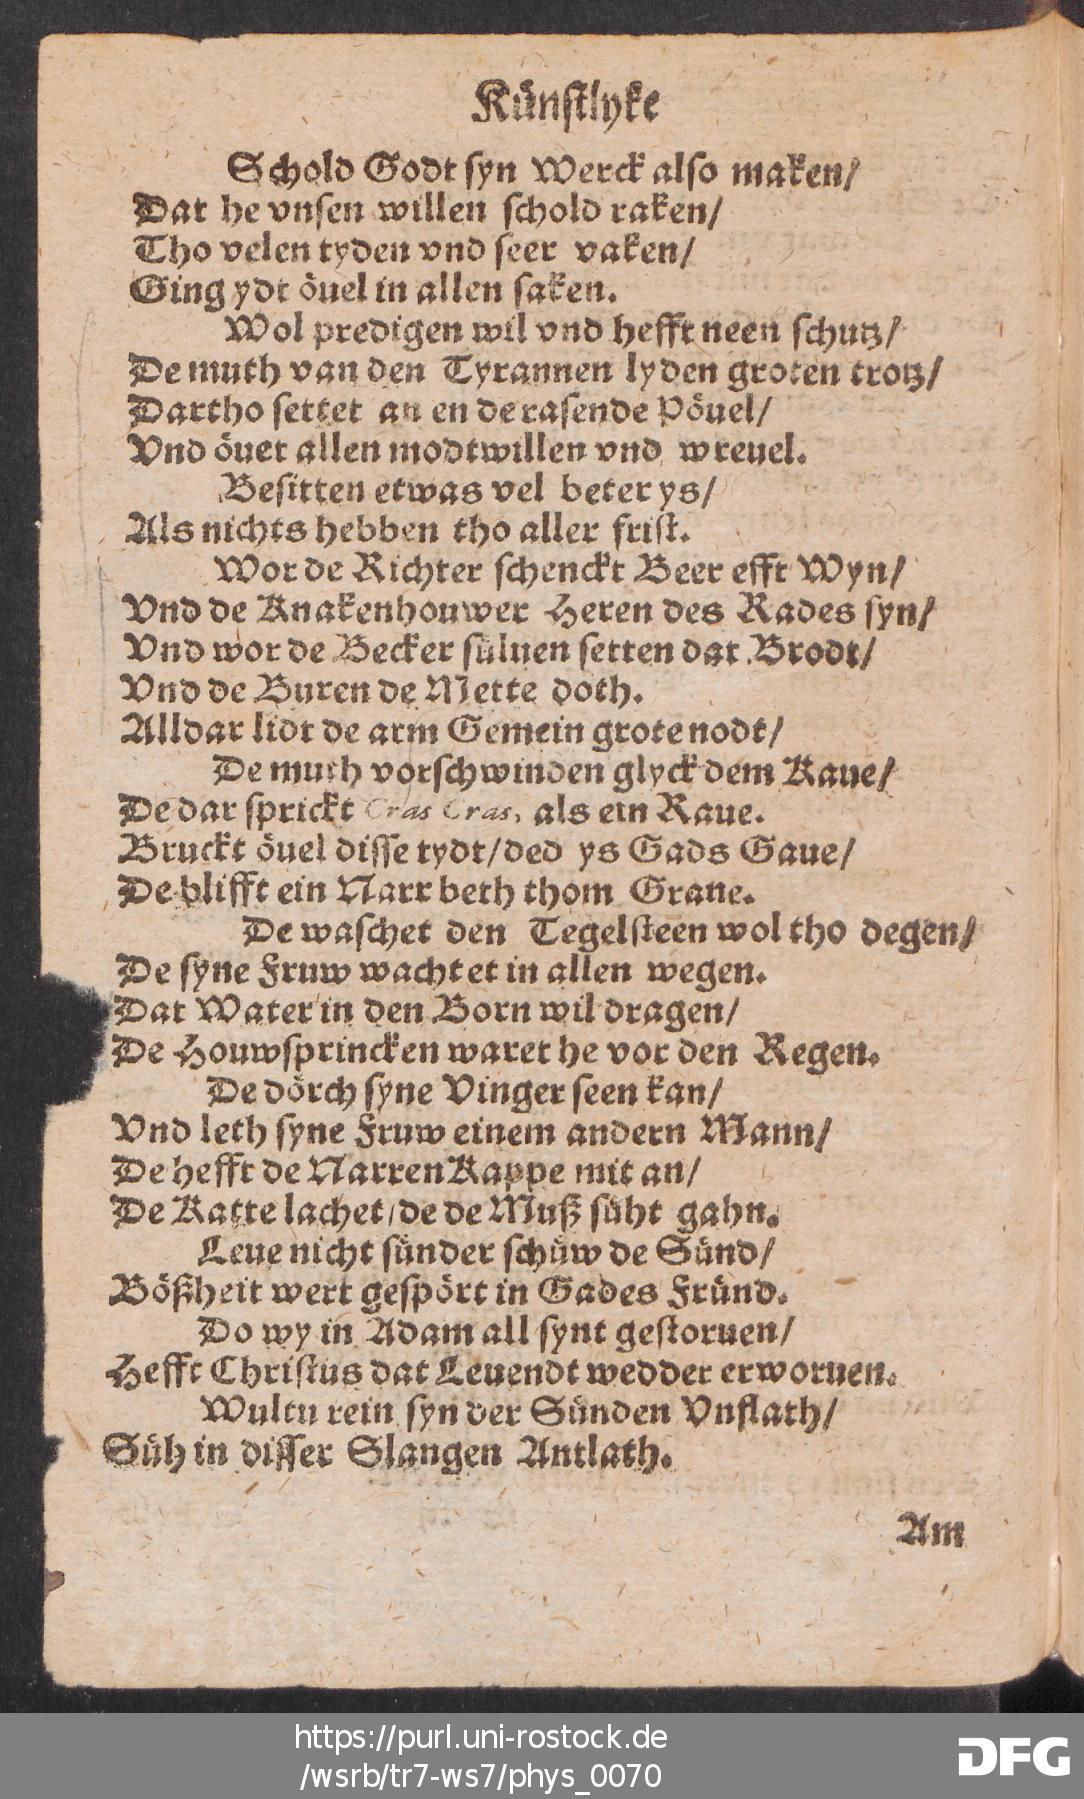 Künstlyke
Schold Godt syn Werck also maken/
Dat he vnsen willen schold raken/
Tho velen tyden vnd seer vaken/
Ging ydt öuel in allen saken.
Wol predigen wil vnd hefft neen schutz/
De muth van den Tyrannen lyden groten trotz/
Dartho settet an en de rasende Pöuel/
Vnd öuet allen modtwillen vnd wreuel.
Besitten etwas vel beter ys/
Als nichts hebben tho aller frist.
Wor de Richter schenckt Beer efft Wyn/
Vnd de Knakenhouwer Heren des Rades syn/
Vnd wor de Becker süluen setten dat Brodt/
Vnd de Buren de Mette doth.
Alldar lidt de arm Gemein grote nodt/
De muth vorschwinden glyck dem Kaue/
De dar sprickt Cras Cras, als ein Raue.
Bruckt öuel disse tydt/ ded ys Gads Gaue/
De blifft ein Narr beth thom Graue.
De waschet den Tegelsteen wol tho degen/
De syne Fruw wachtet in allen wegen.
Dat Water in den Born wil dragen/
De Houwsprincken waret he vor den Regen.
De dörch syne Vinger seen kan/
Vnd leth syne Fruw einem andern Mann/
De hefft de Narren Kappe mit an/
De Katte lachet/ de de Muß süht gahn.
Leue nicht sünder schüw de Sünd/
Bößheit wert gespört in Gades Fründ.
Do wy in Adam all synt gestoruen/
Hefft Christus dat Leuendt wedder erworuen.
Wultu rein syn der Sünden Vnflath/
Süh in disser Slangen Antlath.
Am
https://purl.uni-rostock.de
/wsrb/tr7-ws7/phys_0070
DFG